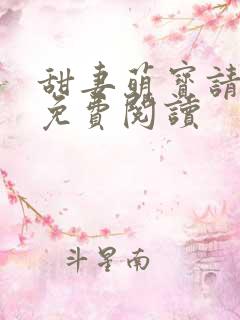 甜妻萌寶請
免費閱讀
斗星南